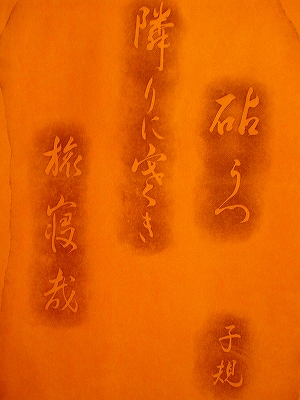 砧うつ
隣りに寒き
旅寝哉
子規